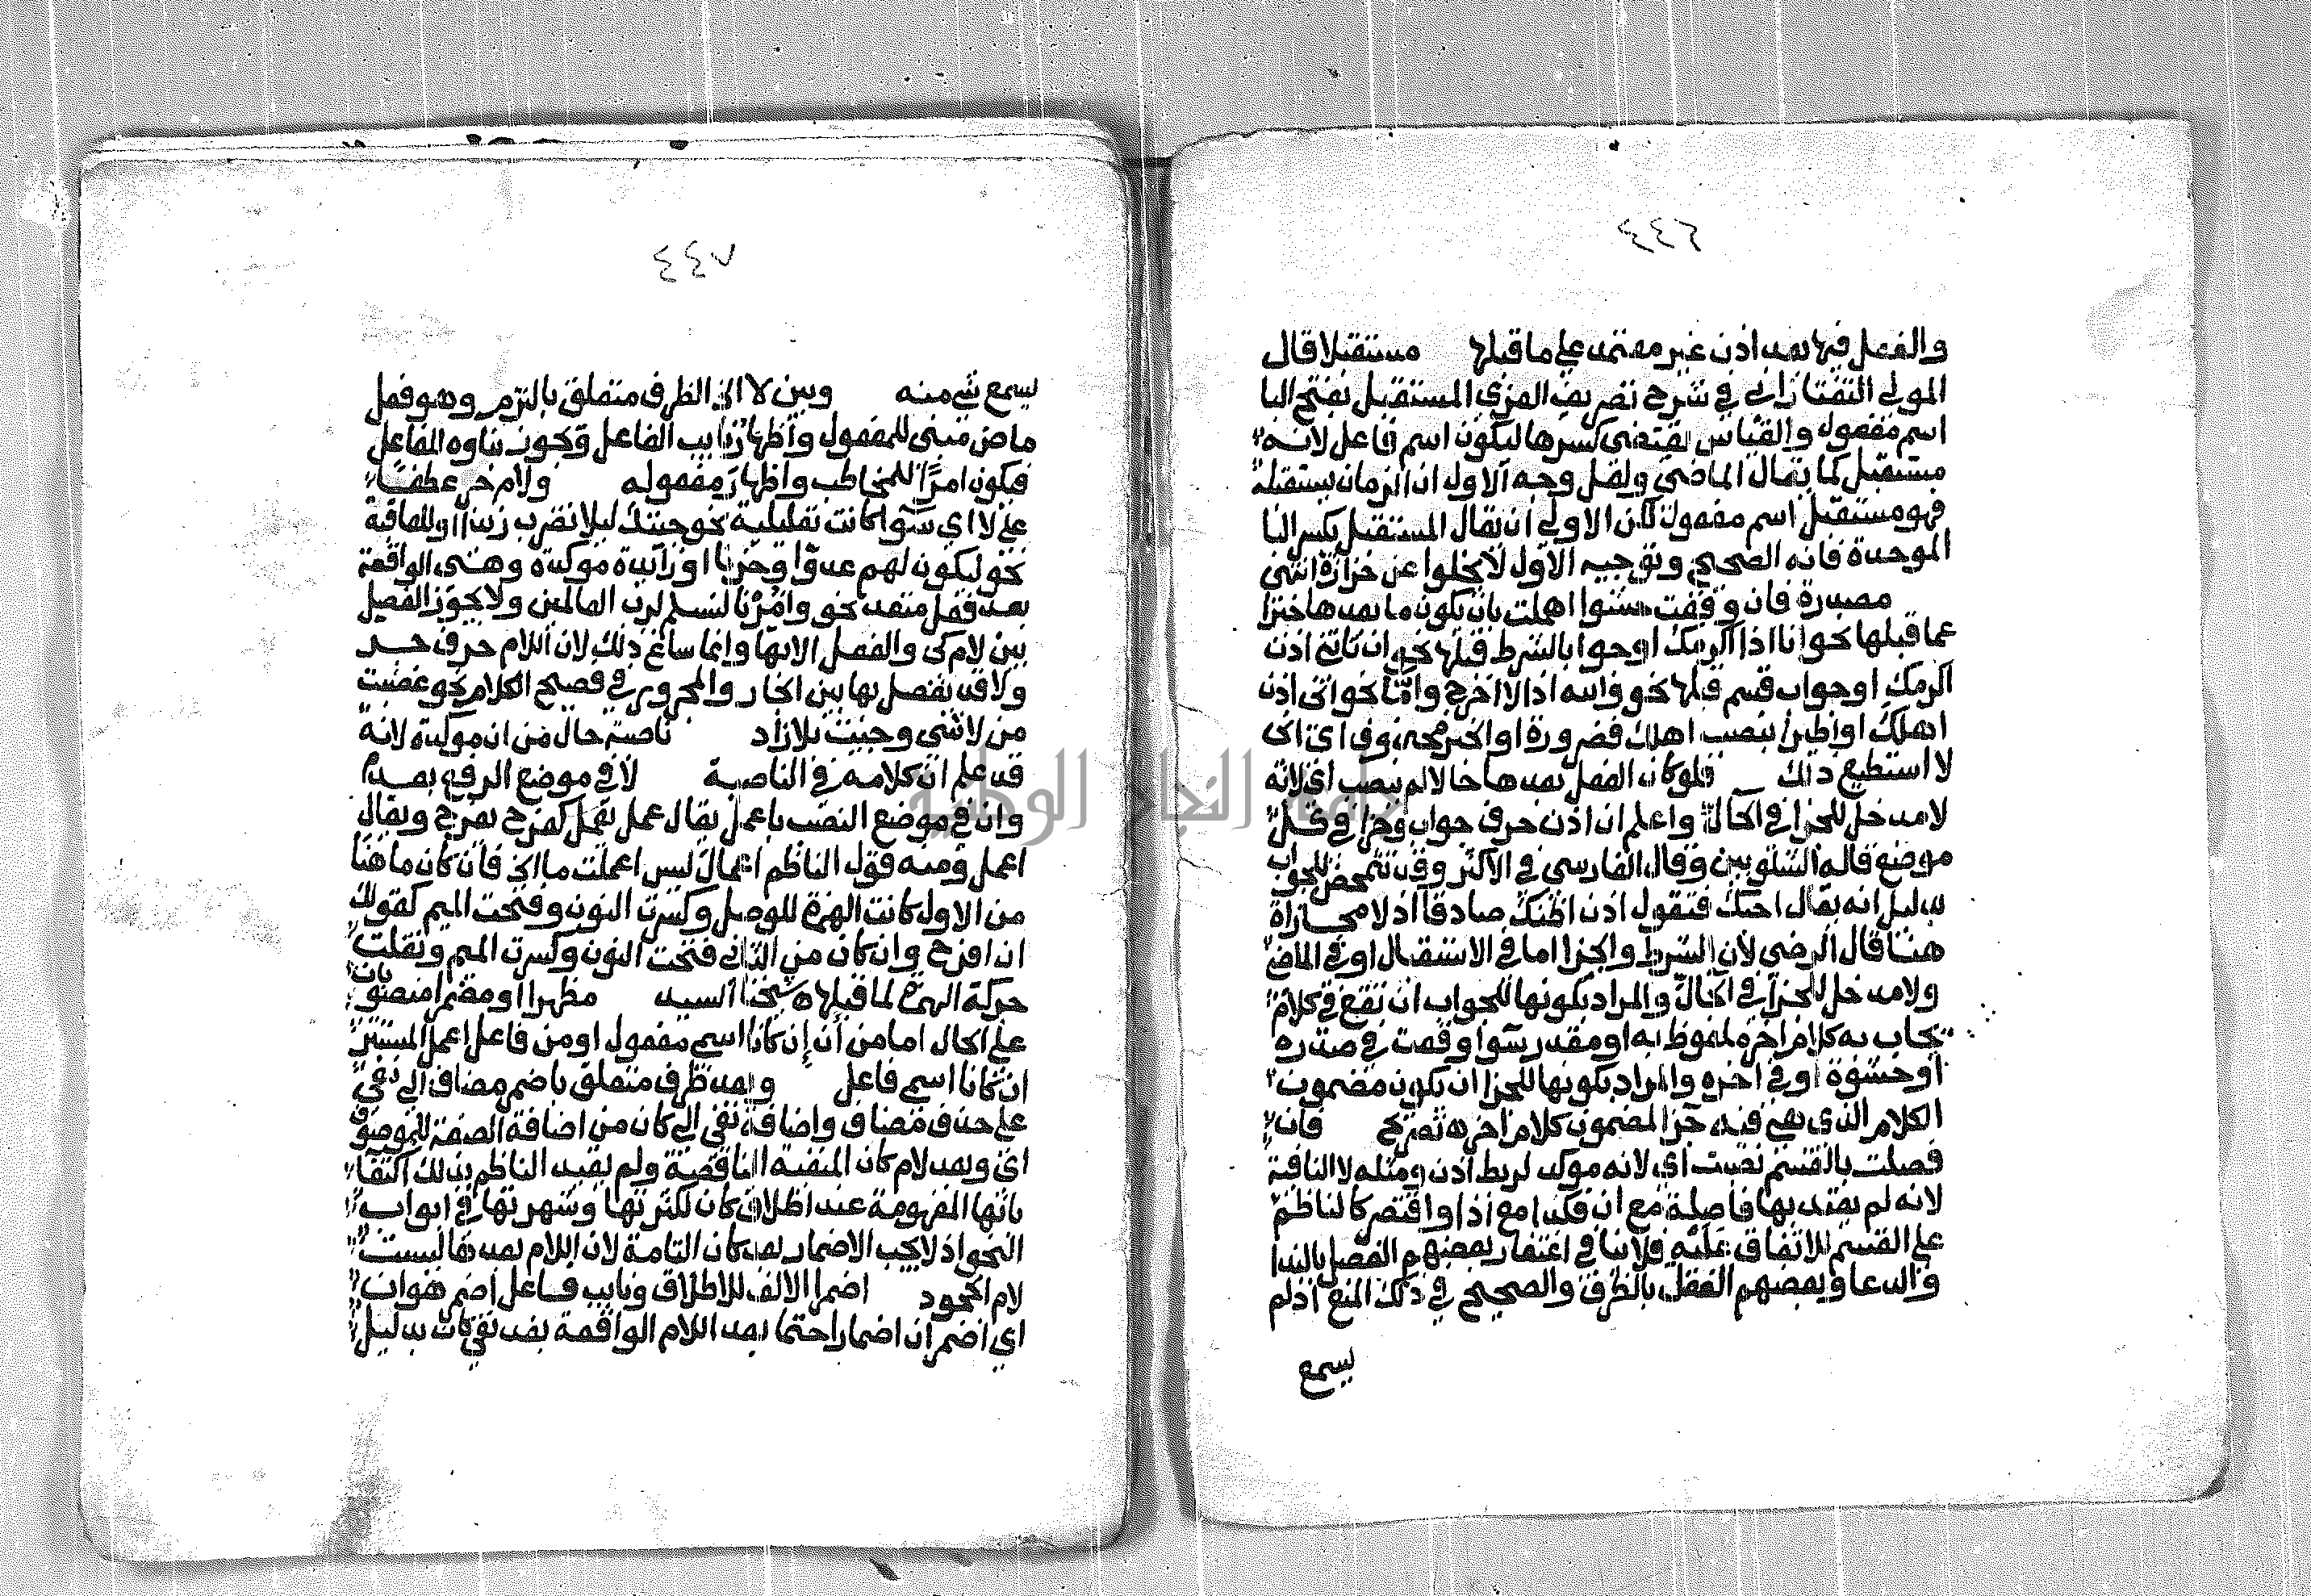 ٤٤٦
والفعل فيها بعد اذن غير معتمد على ما قبلها مستقبلا قال
المولى التفتازاني في شرح تصريف العزي المستقبل بفتح البا
اسم مفعول والقياس يقتضى كسرها ليكون اسم فاعل لانه
مستقبل كما يقال الماضي ولعل وجه الاول ان الزمان يستقبله
فهو مستقبل اسم مفعول لكن الاولى ان يقال المستقبل بكسر البا
الموحدة فانه الصحيح وتوجيه الاول لا يخلوا عن حزازة انتهى
مصدرة فان وقعت حشوا اهملت بان يكون ما بعدها خبرا
عما قبلها نحو انا اذا اكرمك او جوابا لشرط قبلها نحو ان تاتني اذن
اكرمك او جواب قسم قبلها نحو والله اذا لا اخرج واما نحو اني اذن
اهلك او اطيرا بنصب اهلك فضرورة او الخبر محذوف اي اني
لا استطيع ذلك فلو كان الفعل بعدها حالا لم ينصب اي لانه
لا مدخل للجزا في الحال واعلم ان اذن حرف جواب وجزا في كل
موضع قاله الشلوبين وقال الفارسي في الاكثر وقد تتمحض للجواب
بدليل انه يقال احبك فتقول اذن اظنك صادقا اذ لا مجازاة
هنا قال الرضي لان الشرط والجزا اما في الاستقبال او في الماضي
ولا مدخل للجزآ في الحال والمراد بكونها للجواب ان تقع في كلام
يجاب به كلام اخر ملفوظ به او مقدر سوا وقعت في صدره
او حشوه او في اخره والمراد بكونها للجزا ان يكون مضمون
الكلام الذي هي فيه جزا لمضمون كلام اخر ه تصريح فان
فصلت بالقسم نصبت اي لانه موكد لربط اذن ومثله لا النافية
لانه لم يعتد بها فاصلة مع ان فكذا مع اذا واقتصر كالناظم
على القسم للاتفاق عليه فلا ينافي اغتفار بعضهم الفصل بالندا
والدعا وبعضهم الفصل بالظرف والصحيح في ذلك المنع اذ لم
يسمع
٤٤٧
يسمع شي منه وبين لا الخ الظرف متعلق بالتزم وهو فعل
ماض مبنى للمفعول واظهار نايب الفاعل وتحون بناوه للفاعل
فيكون امرًا للمخاطب واظهار مفعوله ولام جر عطفًا
على لا اي سوا كانت تعليلية نحو جيتك ليلا تضرب زيدا او للعاقبة
نحو ليكون لهم عدوّا وحزنا او زايدة موكدة وهى الواقعة
بعد فعل متعد نحو وامرنا لنسلم لرب العالمين ولا يجوز الفصل
بين لام كى والفعل الا بها وانما ساغ ذلك لان اللام حرف جر
ولا قد يفصل بها بين الجار والمجرور في فصيح الكلام نحو غضبت
من لا شي وجيت بلا زاد ناصبة حال من ان موكدة لانه
قد علم ان كلامه في الناصبة لا في موضع الرفع بعدم
وان في موضع النصب باعمل يقال عمل يعمل كفرح يفرح ويقال
اعمل ومنه قول الناظم اعمال ليس اعملت ما الخ فان كان ما هنا
من الاول كانت الهمزة للوصل وكسرت النون وفتحت الميم كقولك
ان افرح وان كان من الثاني فتحت النون وكسرت الميم ونقلت
حركة الهمزة لما قبلها ه شيخنا السيد مظهرا او مضمرا منصوبان
على الحال اما من أن إن كانا اسمى مفعول او من فاعل اعمل المستتر
ان كانا اسمى فاعل وبعد ظرف متعلق باضمر مضاف الى نفي
على حذف مضاف واضافة نفي الى كان من اضافة الصفة للموصوف
اي وبعد لام كان المنفية الناقصة ولم يقيد الناظم بذلك اكتفا
بانها المفهومة عند اطلاق كان لكثرتها وشهرتها في ابواب
النحو اذ لا يجب الاضمار بعد كان التامة لان اللام بعدها ليست
لام الجحود اضمرا الالف للاطلاق ونايب فاعل اضمر هو ان
اي اضمر ان اضمارا حتما بعد اللام الواقعة بعد نفي كان بدليل
جامعة النجاح الوطنية